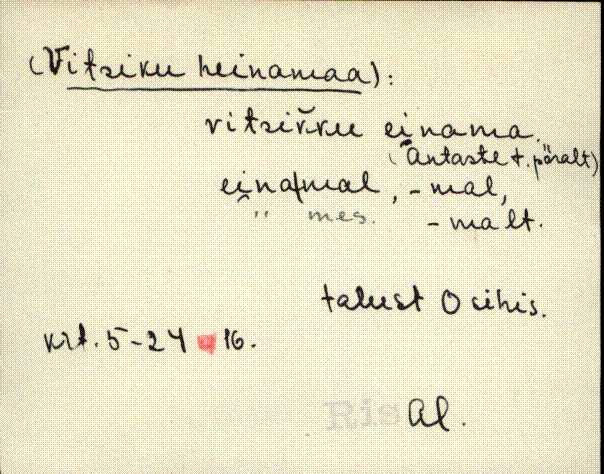 (Vitsiku heinamaa):
vitsiǩku einama.
(Antaste t. päralt)
einamal, -mal,
" mes. -malt.
talust O sihis.
krt. 5-24 16.
Ris Al.